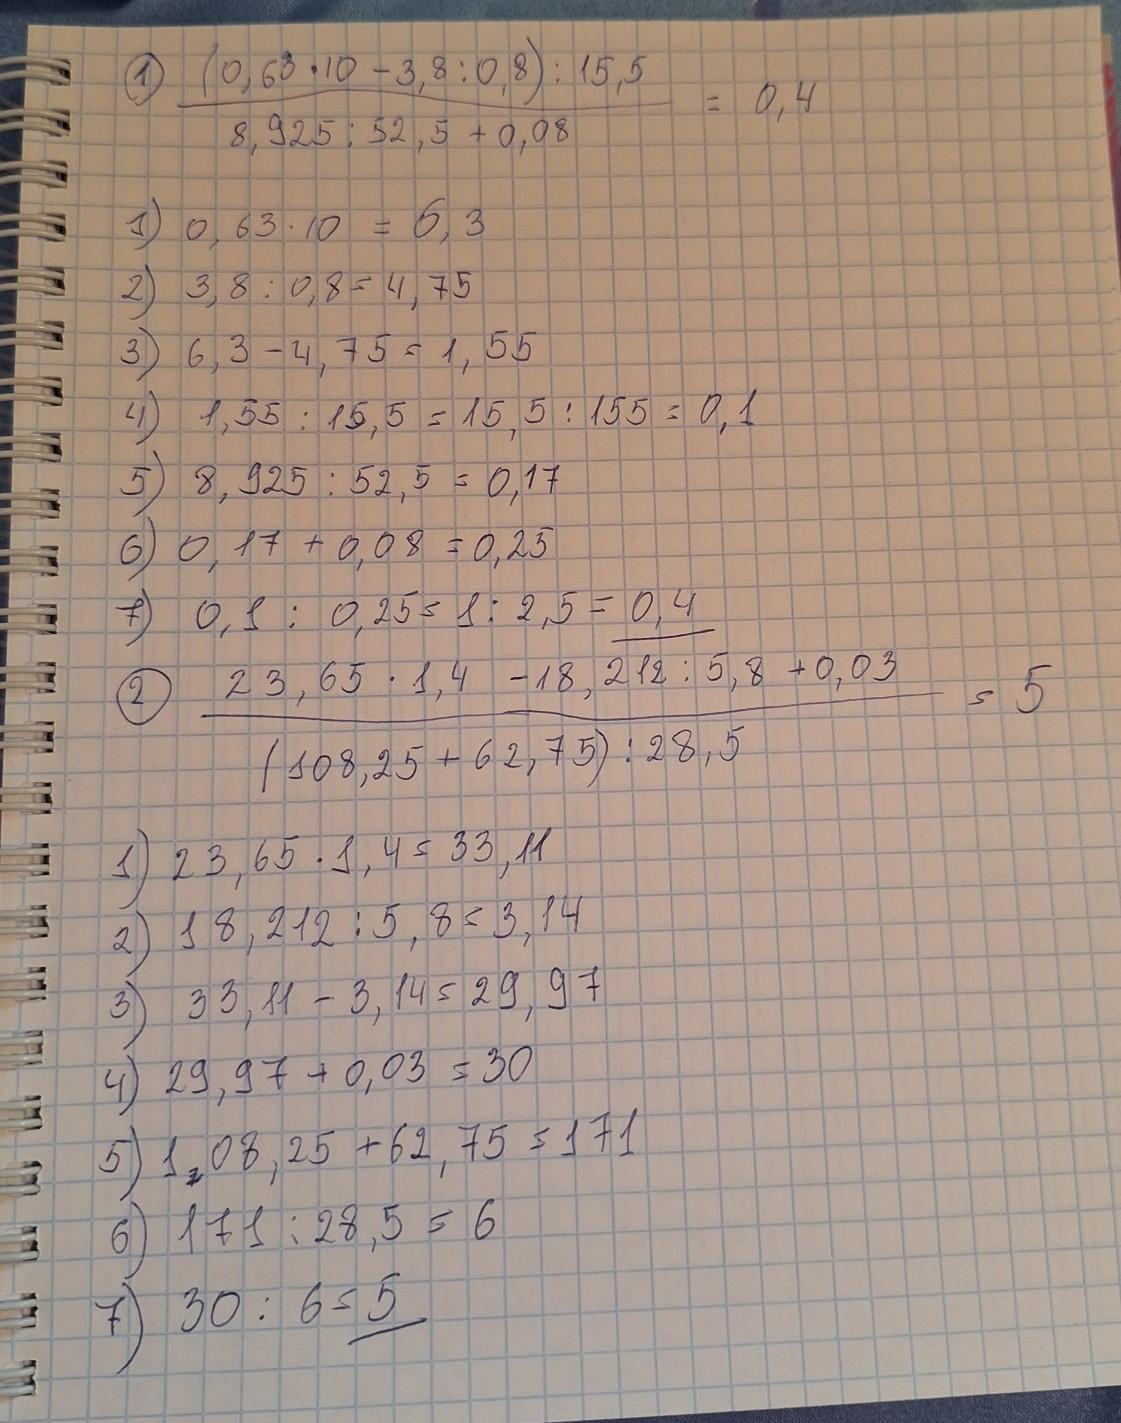 ① (0,63·10-3,8:0,8):15,5
= 0,4
8,925:52,5+0,08
1) 0,63·10 = 6,3
2) 3,8:0,8=4,75
3) 6,3-4,75=1,55
4) 1,55:15,5=15,5:155=0,1
5) 8,925:52,5=0,17
6) 0,17+0,08=0,25
7) 0,1 : 0,25=1:2,5=0,4
② 23,65·1,4 -18,212:5,8+0,03
= 5
(108,25+62,75):28,5
1) 23,65·1,4=33,11
2) 18,212:5,8=3,14
3) 33,11-3,14=29,97
4) 29,97+0,03=30
5) 108,25+62,75=171
6) 171:28,5=6
7) 30:6=5